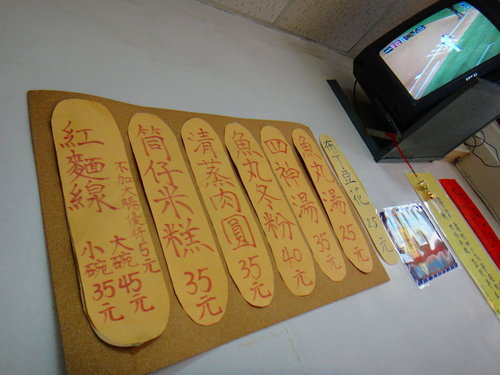 紅麵線
不加大腸優待5元
大碗45元
小碗35元
筒仔米糕
35元
清蒸肉圓
35元
魚丸冬粉
35元
四神湯
40元
魚丸湯
25元
豆花
25元